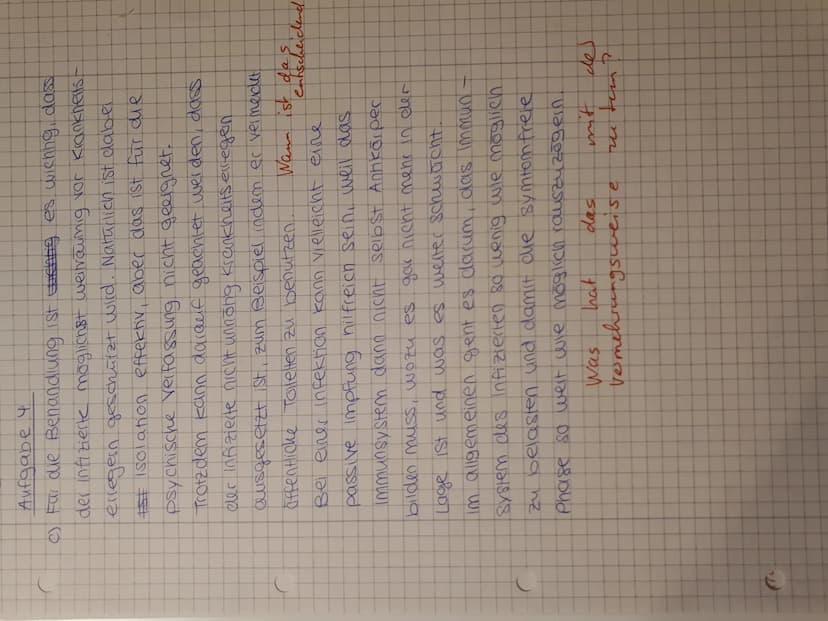 Aufgabe 4
c) Für die Behandlung ist wichtig es wichtig, dass
der infizierte möglichst weiträumig vor Krankheits-
erregern geschützt wird. Natürlich ist dabei
ist Isolation effektiv, aber das ist für die
psychische Verfassung nicht geeignet.
Trotzdem kann darauf geachtet werden, dass
der infizierte nicht unnötig Krankheitserregen
ausgesetzt ist, zum Beispiel indem er vermeidet
öffentliche Toiletten zu benutzen. Wann ist das
entscheidend
Bei einer Infektion kann vielleicht eine
passive Impfung hilfreich sein, weil das
Immunsystem dann nicht selbst Antikörper
bilden muss, wozu es gar nicht mehr in der
Lage ist und was es weiter schwächt.
Im allgemeinen geht es darum, das Immun-
system des Infizierten so wenig wie möglich
zu belasten und damit die symtomfreie
Phase so weit wie möglich rauszuzögern.
Was hat das mit der
Vermehrungsweise zu tun?